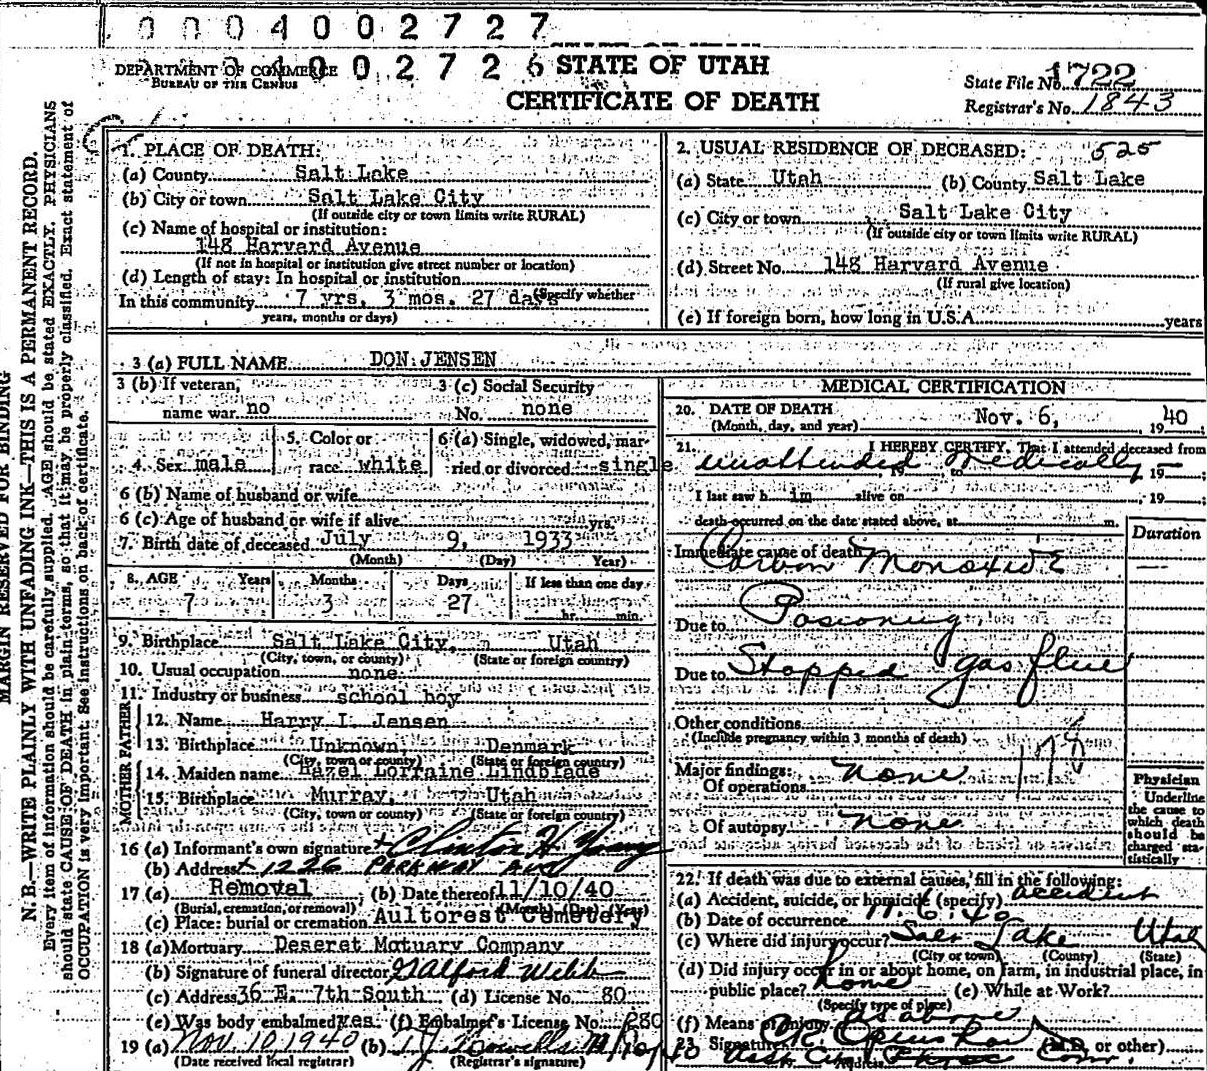 0004002727
0004002726 STATE OF UTAH
DEPARTMENT OF COMMERCE
BUREAU OF THE CENSUS
CERTIFICATE OF DEATH
State File No. 1722
Registrar's No. 1843
MARGIN RESERVED FOR BINDING
N. B.—WRITE PLAINLY WITH UNFADING INK—THIS IS A PERMANENT RECORD.
Every item of information should be carefully supplied. AGE should be stated EXACTLY. PHYSICIANS
should state CAUSE OF DEATH in plain terms, so that it may be properly classified. Exact statement of
OCCUPATION is very important. See instructions on back of certificate.
1. PLACE OF DEATH:
(a) County Salt Lake
(b) City or town Salt Lake City
(If outside city or town limits write RURAL)
(c) Name of hospital or institution:
148 Harvard Avenue
(If not in hospital or institution give street number or location)
(d) Length of stay: In hospital or institution
(Specify whether
In this community 7 yrs. 3 mos. 27 days
years, months or days)
2. USUAL RESIDENCE OF DECEASED: 525
(a) State Utah (b) County Salt Lake
(c) City or town Salt Lake City
(If outside city or town limits write RURAL)
(d) Street No. 148 Harvard Avenue
(If rural give location)
(e) If foreign born, how long in U.S.A. years
3 (a) FULL NAME DON JENSEN
3 (b) If veteran, name war no
3 (c) Social Security No. none
4. Sex male
5. Color or race white
6 (a) Single, widowed, married or divorced single
6 (b) Name of husband or wife
6 (c) Age of husband or wife if alive yrs.
7. Birth date of deceased July 9, 1933
(Month) (Day) Year)
8. AGE Years Months Days If less than one day
7 3 27 hr. min.
9. Birthplace Salt Lake City, Utah
(City, town, or county) (State or foreign country)
10. Usual occupation none
11. Industry or business school boy
FATHER
12. Name Harry I. Jensen
13. Birthplace Unknown, Denmark
(City, town or county) (State or foreign country)
MOTHER
14. Maiden name Hazel Lorraine Lindblade
15. Birthplace Murray, Utah
(City, town or county) (State or foreign country)
16 (a) Informant's own signature Clinton H Young
(b) Address 1226 PARKWAY AVE
17 (a) Removal (b) Date thereof 11/10/40
(Burial, cremation, or removal) (Month) (Day) (Year)
(c) Place: burial or cremation Aultorest Cemetery
18 (a) Mortuary Deseret Motuary Company
(b) Signature of funeral director Galford Webb
(c) Address 36 E. 7th South (d) License No. 80
(e) Was body embalmed yes (f) Embalmer's License No. 280
19 (a) Nov. 10, 1940 (b)
(Date received local registrar) (Registrar's signature)
MEDICAL CERTIFICATION
20. DATE OF DEATH Nov. 6, 1940
(Month, day, and year)
21. I HEREBY CERTIFY, That I attended deceased from
unattended Medically, 19
I last saw h im alive on 19
death occurred on the date stated above, at m.
Duration
Immediate cause of death Carbon Monoxide
Due to Posioning
Due to Stopped gas flue
Other conditions
(Include pregnancy within 3 months of death)
178
Major findings:
Of operations none
Of autopsy none
Physician
Underline
the cause to
which death
should be
charged sta-
tistically
22. If death was due to external causes, fill in the following:
(a) Accident, suicide, or homicide (specify) accident
(b) Date of occurrence 11.6.40
(c) Where did injury occur? Salt Lake Utah
(City or town) (County) (State)
(d) Did injury occur in or about home, on farm, in industrial place, in
public place? home (e) While at Work?
(Specify type of place)
(f) Means of injury as above
23. Signature (M.D. or other)
Address